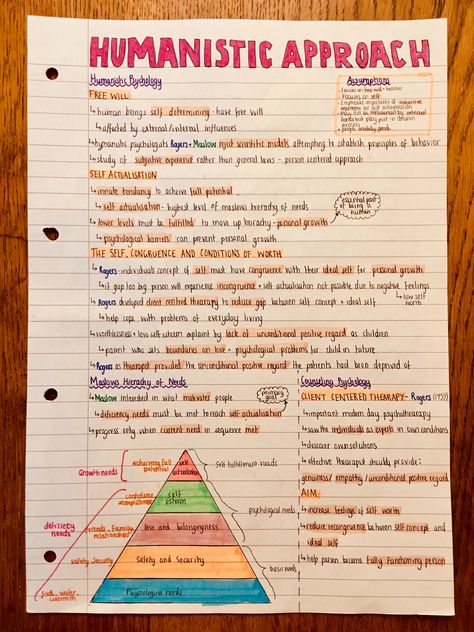 HUMANISTIC APPROACH
Humanistic Psychology
FREE WILL
↳ human beings self determining - have free will
↳ affected by external/internal influences
↳ humanistic psychologists Rogers + Maslow reject scientific models attempting to establish principles of behavior
↳ study of subjective experience rather than general laws - person centered approach
Assumptions
- Focuses on free will + holism
- Focuses on self
- Emphasises importance of subjective
for self actualisation
- May still be influenced by external
forces but play part in decision
process
- people innately good
SELF ACTUALISATION
↳ innate tendency to achieve full potential
↳ self actualisation - highest level of maslows hierachy of needs
↳ lower levels must be fulfilled to move up hierachy - personal growth
↳ psychological barriers can prevent personal growth
essential part
of being a
human
THE SELF, CONGRUENCE AND CONDITIONS OF WORTH
↳ Rogers - individuals concept of self must have congruence with their ideal self for personal growth
↳ if gap too big person will experience incongruence + self actualisation not possible due to negative feelings
↳ low self
worth
↳ Rogers developed client centred therapy to reduce gap between self concept + ideal self
↳ help cope with problems of everyday living
↳ worthlessness + low self esteem explaint by lack of unconditional positive regard as children
↳ parent who sets boundaries on love - psychological problems for child in future
↳ Rogers as therapist provided the unconditional positive regard the patients had been deprived of
Maslows Hierachy of Needs
↳ Maslow interested in what motivates people
primary
goal
↳ deficiency needs must be met to reach self actualisation
↳ progress only when current need in sequence met
Growth needs
achieving full
potential
self
actualisation
self fulfillment needs
confidence
accomplishment
self
esteem
psychological needs
deficiency
needs
friends, family
relationships
love and belongingness
safety, security
Safety and Security
basic needs
food, water
warmth
Physiological needs
Counseling Psychology
CLIENT CENTERED THERAPY - Rogers (1959)
↳ important modern day psychotherapy
↳ saw the individuals as experts in own conditions
↳ discover own solutions
↳ effective therapist should provide:
genuiness/ empathy / unconditional positive regard
AIM:
↳ increase feelings of self worth
↳ reduce incongruence between self concept and
ideal self
↳ help person become fully functioning person